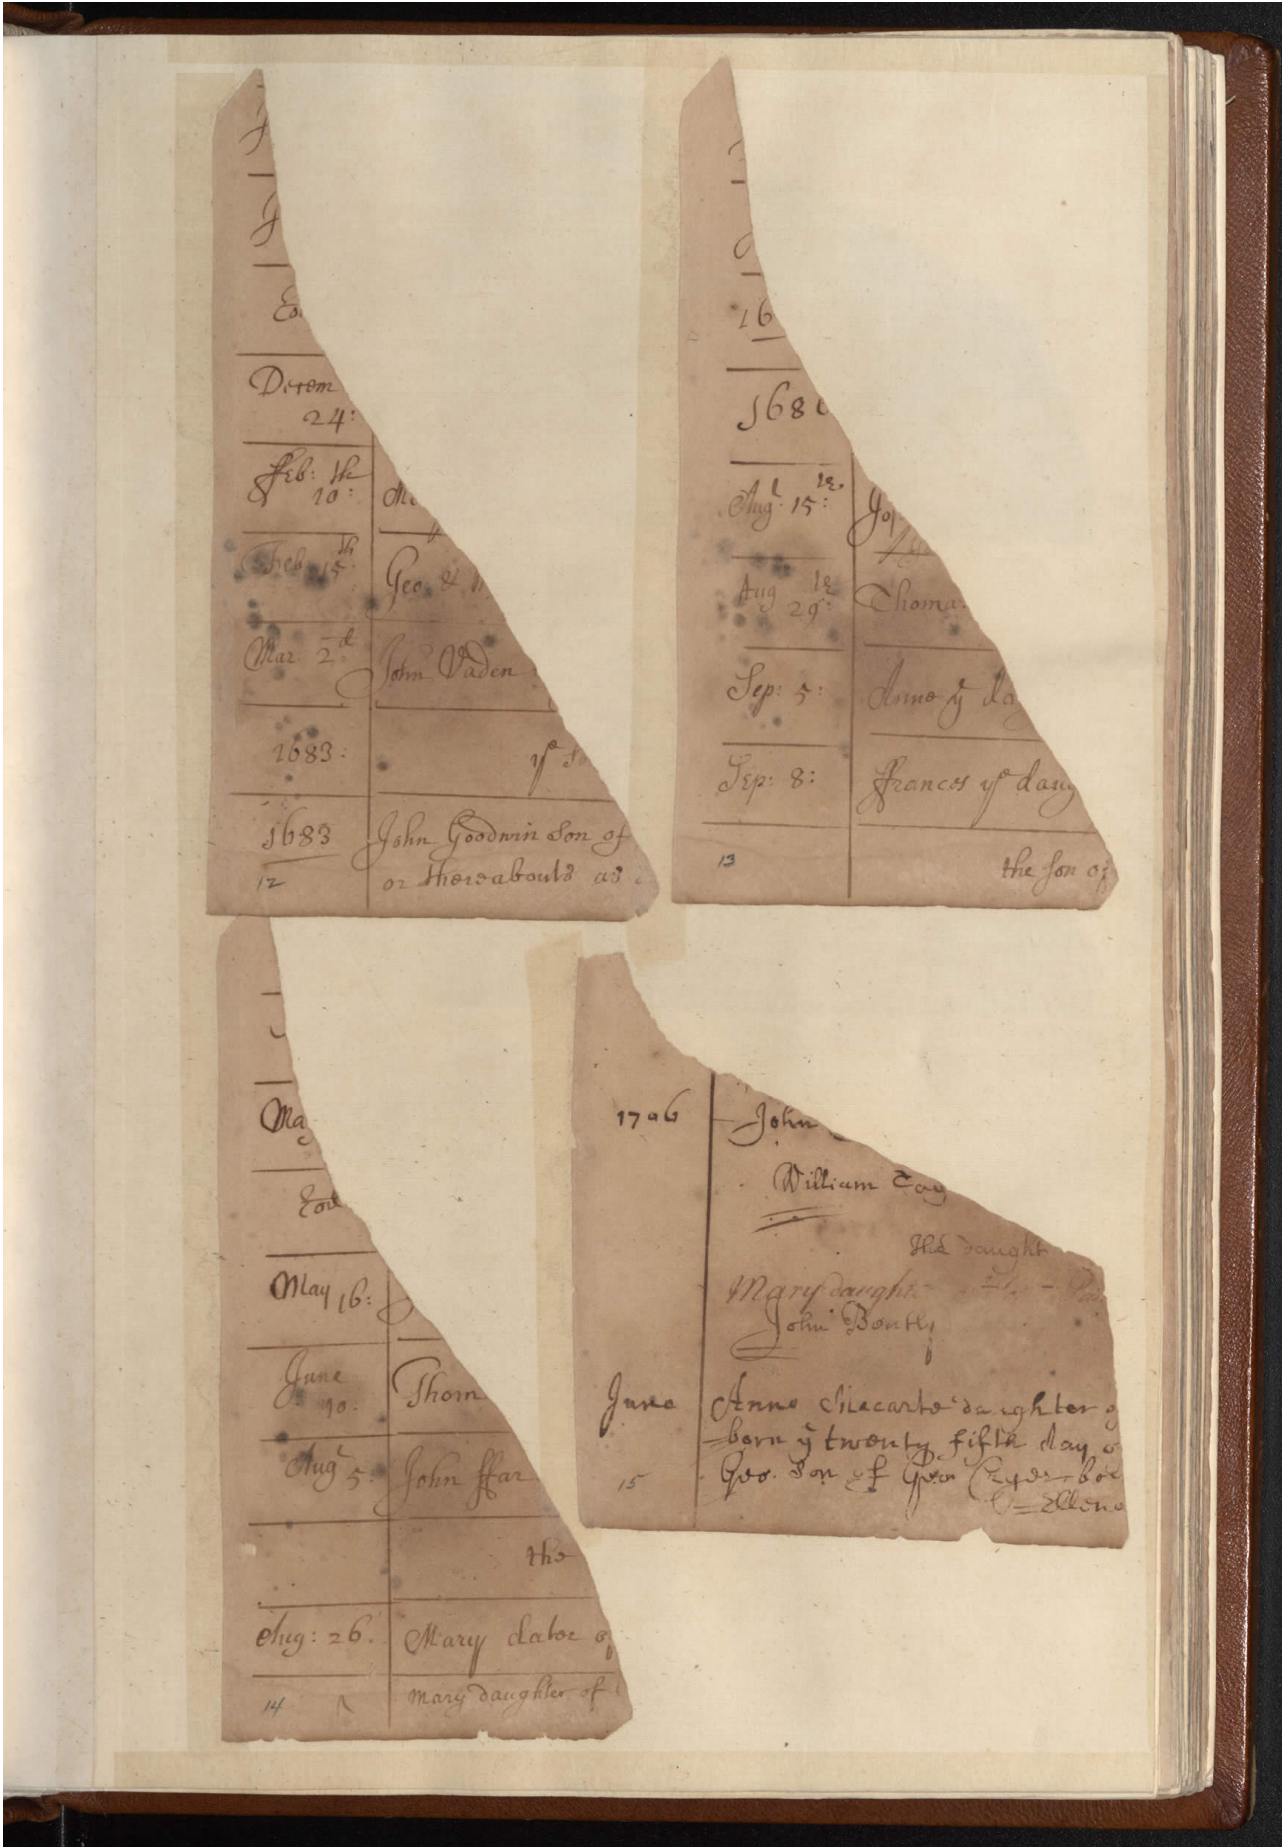 Decem
24:
ffeb: th
10:
Feb 15th
Geo &
Mar. 2d
John Vaden
1683:
ye So
1683
John Goodwin Son of
12
or thereabouts as
16
168
Augt 15:
Aug
29:
Thoma
Sep: 5:
Anne ye da
Sep: 8:
ffrances ye daug
13
the son of
Ma
May 16:
June
10:
Thom
Augt 5:
John ffar
the
Aug: 26.
Mary dater of
14
Mary daughter of
1706
John
William Tay
the daught
Mary daught
John Bently
June
Anne Macarte daughter of
born ye twenty fifth day o
15
Geo. Son of Geo Cryer bor
Elleno